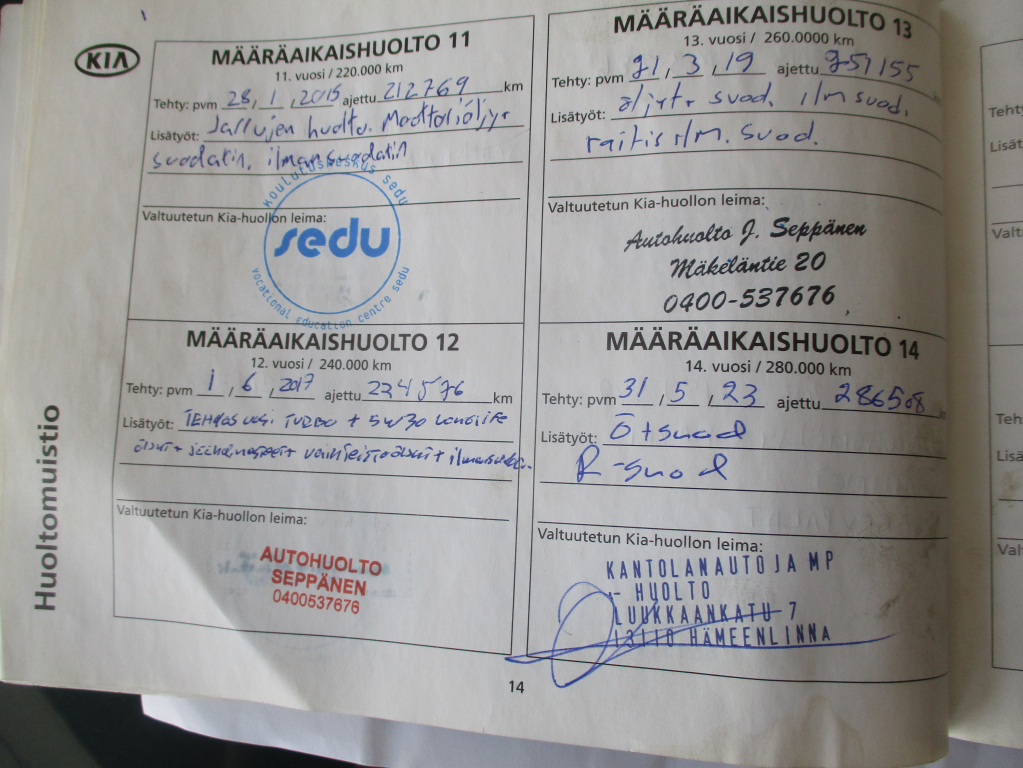 KIA
Huoltomuistio
MÄÄRÄAIKAISHUOLTO 11
11. vuosi / 220.000 km
Tehty: pvm 28, 1, 2015 ajettu 212769 km
Lisätyöt: Jarrujen huolto. Moottoriöljy+
suodatin, ilmansuodatin
Valtuutetun Kia-huollon leima:
koulutuskeskus sedu
sedu
vocational education centre sedu
MÄÄRÄAIKAISHUOLTO 12
12. vuosi / 240.000 km
Tehty: pvm 1, 6, 2017 ajettu 234576 km
Lisätyöt: TEHDAS uusi TURBO + 5W30 LONGLIFE
öljyt + jäähdnesteet vaihteistoöljyt +
Valtuutetun Kia-huollon leima:
AUTOHUOLTO
SEPPÄNEN
0400537676
MÄÄRÄAIKAISHUOLTO 13
13. vuosi / 260.0000 km
Tehty: pvm 21, 3, 19 ajettu 251155
Lisätyöt: öljyt+ suod. ilm suod.
raitis ilm. suod.
Valtuutetun Kia-huollon leima:
Autohuolto J. Seppänen
Mäkeläntie 20
0400-537676
MÄÄRÄAIKAISHUOLTO 14
14. vuosi / 280.000 km
Tehty: pvm 31, 5, 23 ajettu 286508 km
Lisätyöt: Ö+suod
R-suod
Valtuutetun Kia-huollon leima:
KANTOLANAUTO JA MP
- HUOLTO
LUUKKAANKATU 7
13110 HÄMEENLINNA
14